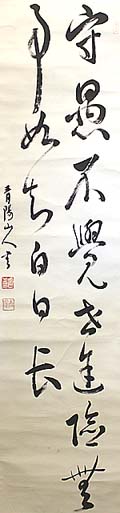 守愚不覺世途險無
事始知白日長
青陽山人書